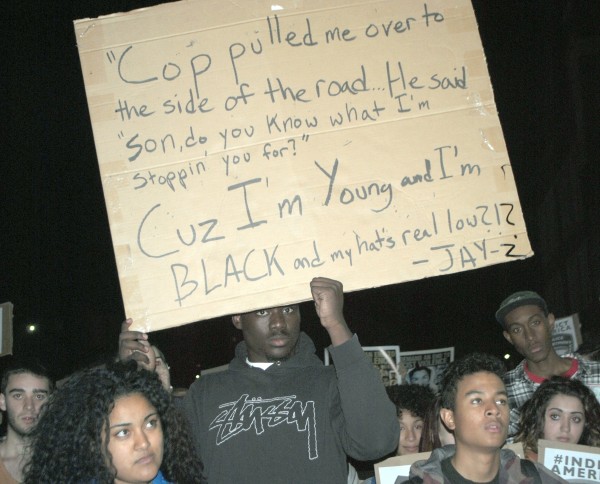 "Cop pulled me over to
the side of the road... He said
"Son, do you know what I'm
stoppin' you for?"
Cuz I'm Young and I'm
BLACK and my hat's real low?!?
- JAY-Z
STÜSSY
#INDI
AMERI